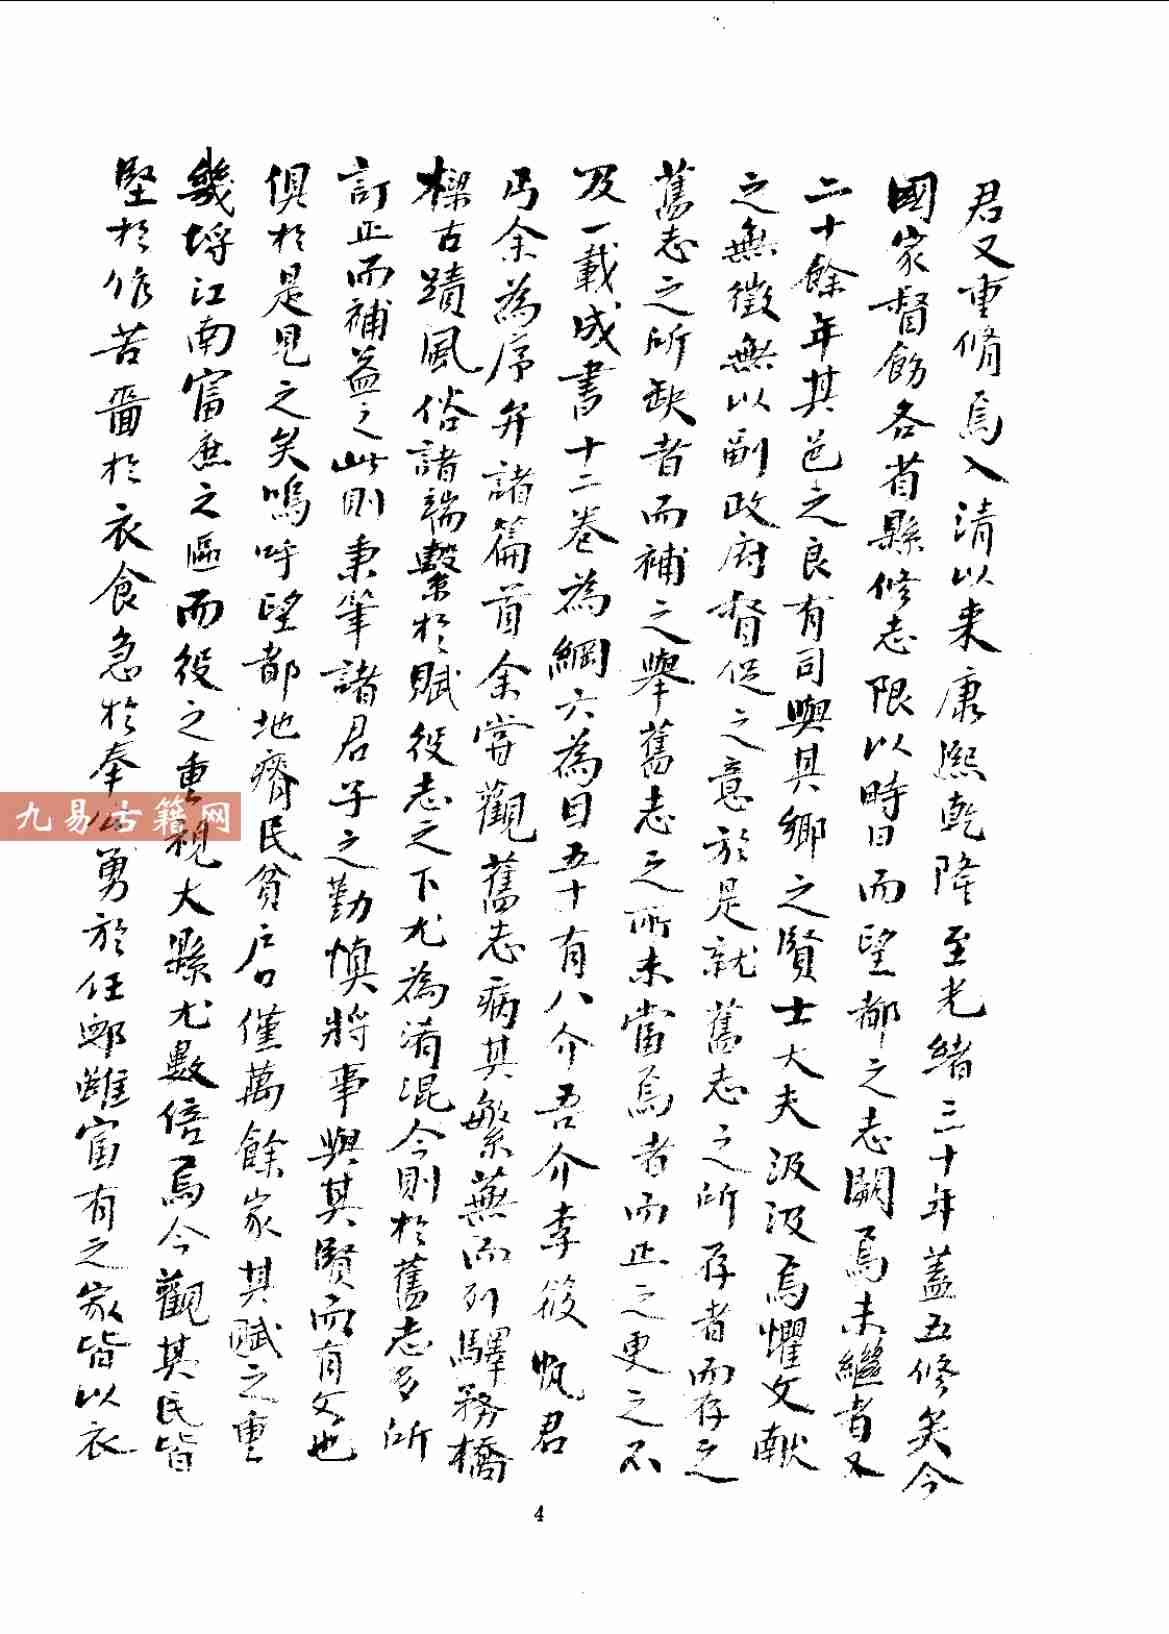 君又重脩焉入清以来康熙乾隆至光緒三十年蓋五修矣今
國家督飭各省縣修志限以時日而望都之志闕焉未繼者又
二十餘年其邑之良有司與其鄉之賢士大夫汲汲焉懼文献
之無徵無以副政府督促之意於是就舊志之所存者而存之
舊志之所缺者而補之舉舊志之所未當焉者而正之更之不
及一載成書十二卷為綱六為目五十有八介吾介李筱帆君
丐余為序弁諸篇首余嘗觀舊志病其繁蕪而列驛務橋
樑古蹟風俗諸端繫於賦役志之下尤為淆混今則於舊志多所
訂正而補益之此則秉筆諸君子之勤慎將事與其賢而有文也
俱於是見之矣嗚呼望都地瘠民貧户口僅萬餘家其賦之重
幾埒江南富庶之區而役之重視大縣尤數倍焉今觀其民皆
堅於作苦嗇於衣食急於奉公勇於任卹雖富有之家皆以衣
4
九易古籍网